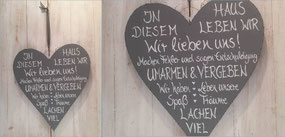 IN HAUS
DIESEM LEBEN WIR
Wir lieben uns!
Machen Fehler und sagen Entschuldigung
UMARMEN & VERGEBEN
Wir haben Leben unsere
Spaß Träume
LACHEN
VIEL
IN HAUS
DIESEM LEBEN WIR
Wir lieben uns!
Machen Fehler und sagen Entschuldigung
UMARMEN & VERGEBEN
Wir haben Leben unsere
Spaß Träume
LACHEN
VIEL